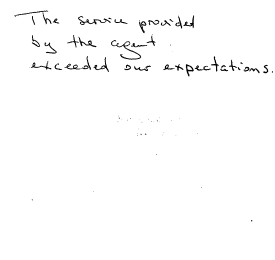 The service provided
by the agent.
exceeded our expectations.